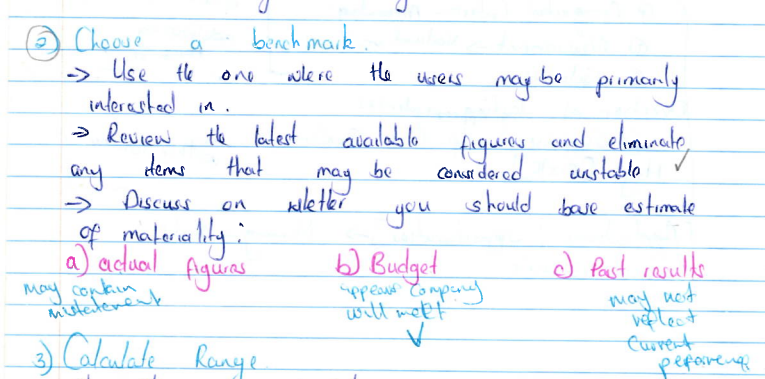 ② Choose a benchmark.
→ Use the one where the users may be primarily
interested in.
→ Review the latest available figures and eliminate
any items that may be considered unstable ✓
→ Discuss on whether you should base estimate
of materiality:
a) actual figures b) Budget c) Past results
may contain misstatement appears company will meet ✓ may not reflect current performance
3) Calculate Range